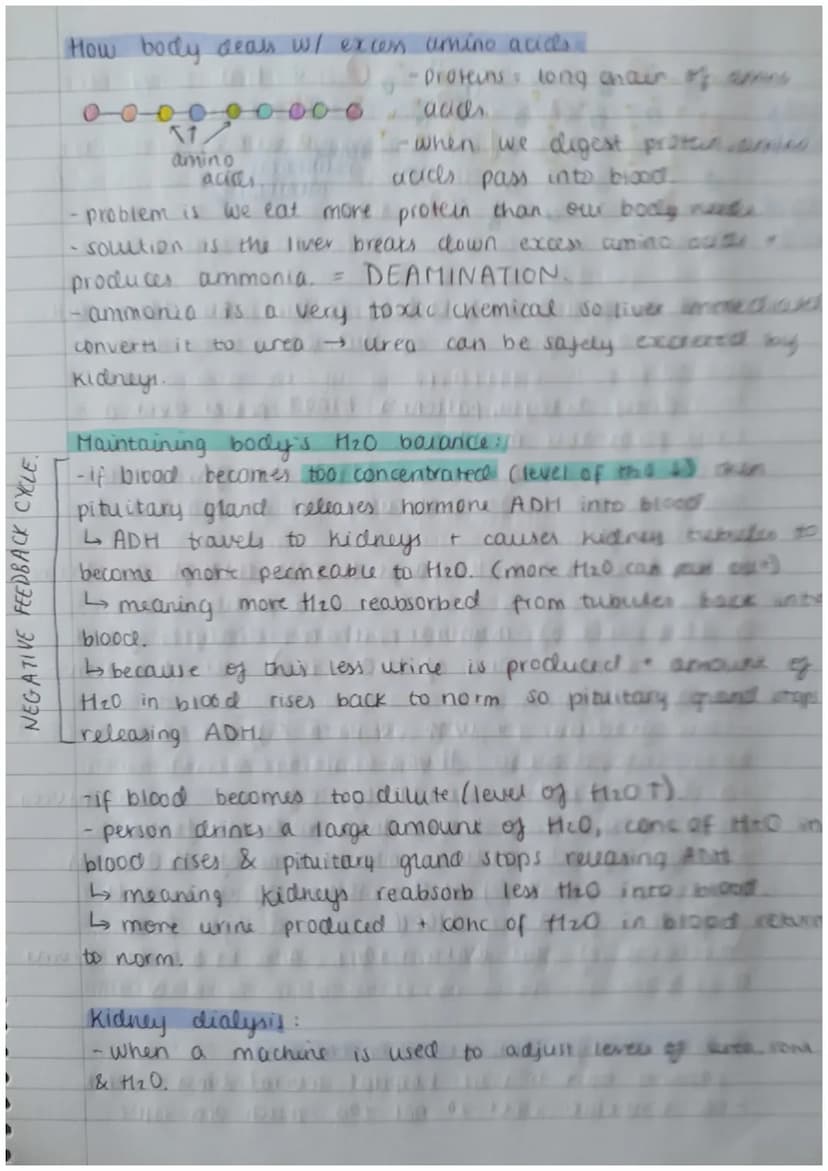 How body deals w/ excess amino acids
- proteins = long chain of amino
acids
amino
acids
- when we digest protein amino
acids pass into blood.
- problem is we eat more protein than our body needs
- solution is the liver breaks down excess amino acids +
produces ammonia. = DEAMINATION.
- ammonia is a very toxic chemical so liver
converts it to urea → urea can be safely excreted by
kidneys.
Maintaining body's H2O balance:
NEGATIVE FEEDBACK CYCLE.
- if blood becomes too concentrated (level of H2O ↓) then
pituitary gland releases hormone ADH into blood
↳ ADH travels to kidneys + causes kidney tubules to
become more permeable to H2O. (more H2O can out)
↳ meaning more H2O reabsorbed from tubules back into
blood.
↳ because of this less urine is produced + amount of
H2O in blood rises back to norm so pituitary gland stops
releasing ADH.
- if blood becomes too dilute (level of H2O ↑)
- person drinks a large amount of H2O, conc of H2O in
blood rises & pituitary gland stops releasing ADH
↳ meaning kidneys reabsorb less H2O into blood
↳ more urine produced + conc of H2O in blood return
to norm.
Kidney dialysis:
- when a machine is used to adjust levels of urea, ions
& H2O.